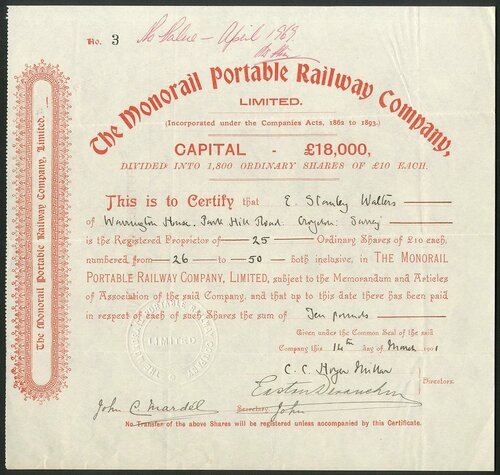 No. 3 No Value – April 1969
The Monorail Portable Railway Company,
LIMITED.
(Incorporated under the Companies Acts, 1862 to 1893.)
CAPITAL - £18,000,
DIVIDED INTO 1,800 ORDINARY SHARES OF £10 EACH.
This is to Certify that E. Stanley Walters
of Warrington House, Park Hill Road, Croydon, Surrey
is the Registered Proprietor of 25 Ordinary Shares of £10 each,
numbered from 26 to 50 both inclusive, in THE MONORAIL
PORTABLE RAILWAY COMPANY, LIMITED, subject to the Memorandum and Articles
of Association of the said Company, and that up to this date there has been paid
in respect of each of such Shares the sum of Ten pounds
Given under the Common Seal of the said
Company this 14th day of March 1901
C. C. Hoyer Millar
Directors.
John C. Mardell Secretary.
No Transfer of the above Shares will be registered unless accompanied by this Certificate.
The Monorail Portable Railway Company, Limited.
LIMITED